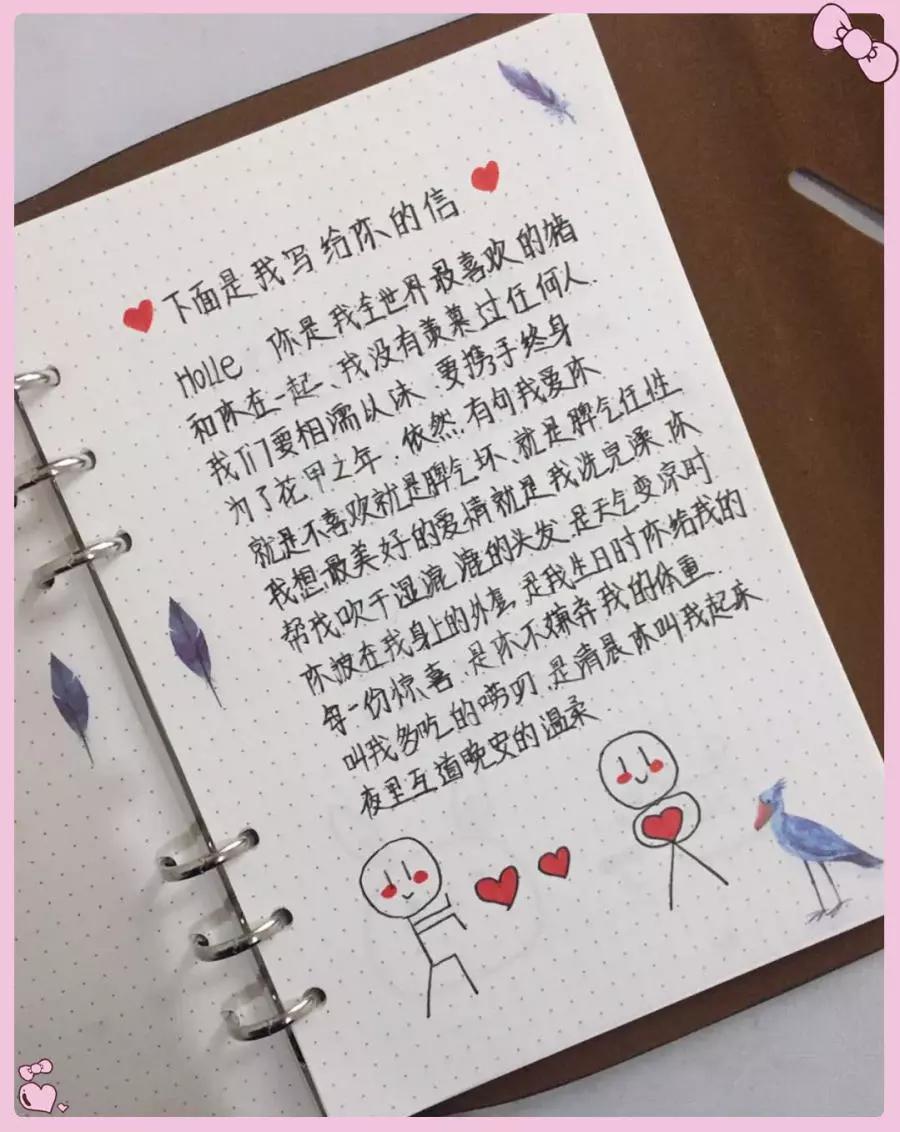 下面是我写给你的信
Holle 你是我全世界最喜欢的猪
和你在一起、我没有羡慕过任何人.
我们要相濡以沫、要携手终身
为了花甲之年.依然.有句我爱你
就是不喜欢就是脾气坏、就是脾气任性
我想最美好的爱情就是我洗完澡.你
帮我吹干湿漉漉的头发.是天气变凉时
你披在我身上的外套.是我生日时你给我的
每一份惊喜.是你不嫌弃我的体重.
叫我多吃的唠叨.是清晨你叫我起床
夜里互道晚安的温柔